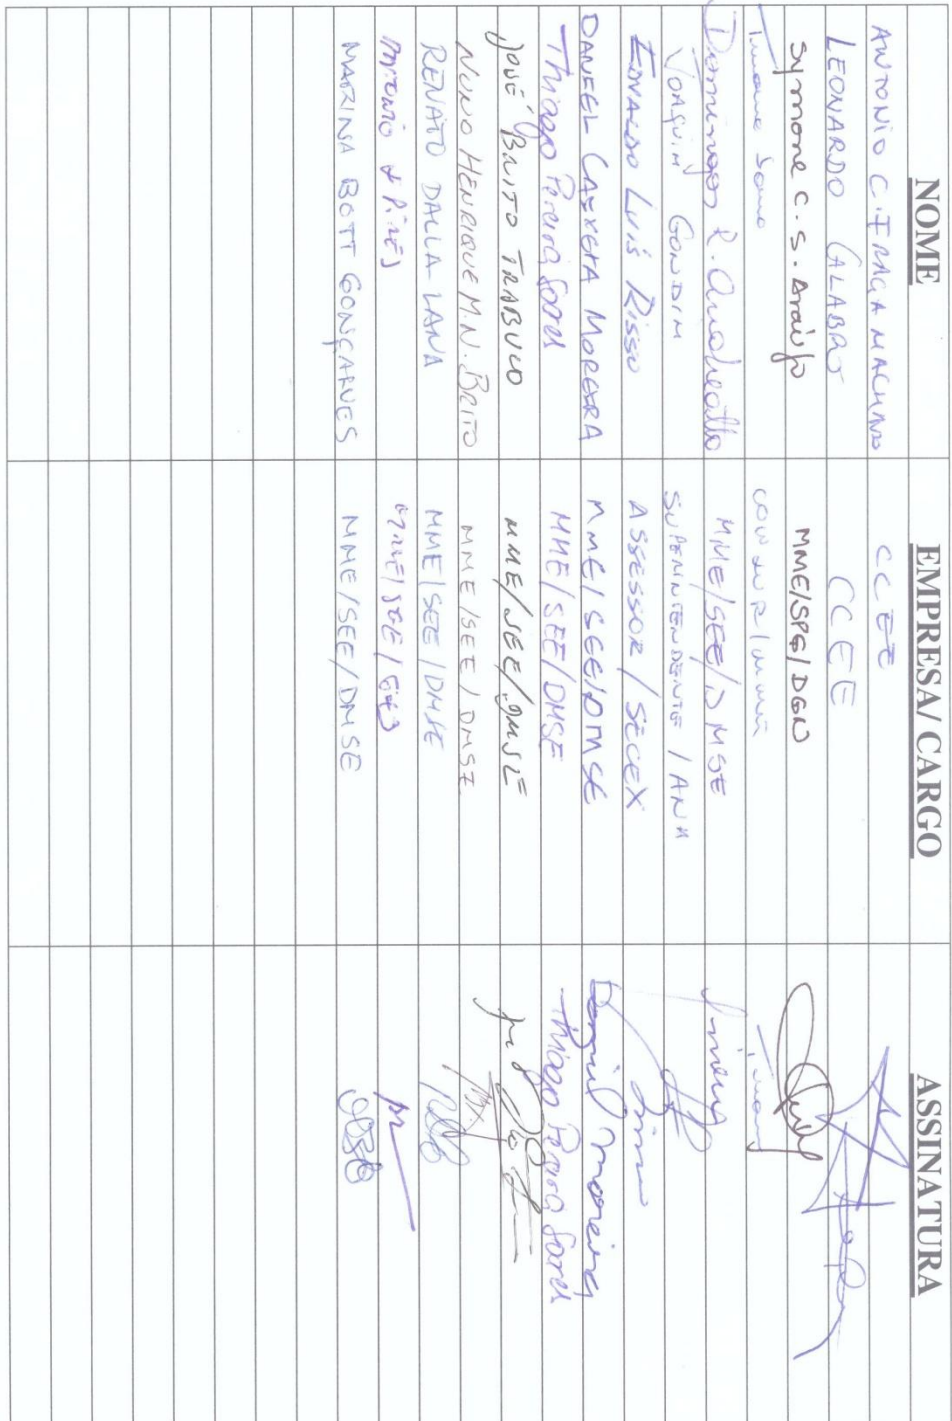 NOME EMPRESA/ CARGO ASSINATURA
ANTONIO C. FRAGA MACHADO CCEE
LEONARDO CALABRÓ CCEE
Symone C. S. Araújo MME/SPG/DGN
CONJUR/
Domingos R. MME/SEE/DMSE
JOAQUIM GONDIM SUPERINTENDENTE / ANA
EDVALDO LUÍS RISSO ASSESSOR / SECEX
DANIEL CAIXETA MOREIRA MME/SEE/DMSE Daniel Moreira
Thiago Pereira Soares MME/SEE/DMSE Thiago Pereira Soares
JOSÉ BRITO TRABUCO MME/SEE/DMSE
NUNO HENRIQUE M.N. BRITO MME/SEE/DMSE
RENATO DALLA LANA MME/SEE/DMSE
MARINA BOTT GONÇALVES MME/SEE/DMSE